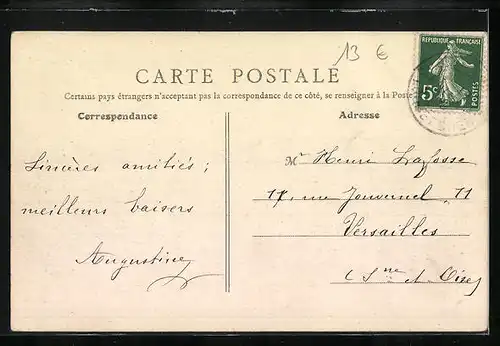 13 €
RÉPUBLIQUE FRANÇAISE
5c
POSTES
CARTE POSTALE
Certains pays étrangers n'acceptant pas la correspondance de ce côté, se renseigner à la Poste
Correspondance
Adresse
Sincères amitiés ;
meilleurs baisers
Augustine
Mr Henri Lafosse
17, rue Jouvencel 17
Versailles
(Sne et Oise)